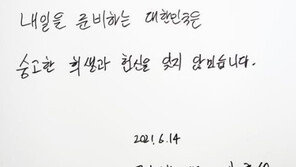 내일을 준비하는 대한민국은
숭고한 희생과 헌신을 잊지 않겠습니다.
2021. 6. 14